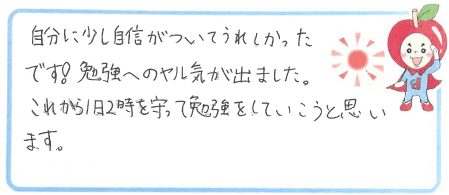 自分に少し自信がついてうれしかった
です!勉強へのヤル気が出ました。
これから1日2時を守って勉強をしていこうと思い
ます。